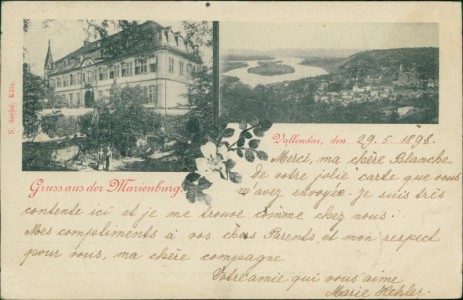 N. Seehé, Köln.
Vallendar, den 29.5.1898.
Gruss aus der Marienburg
Merci, ma chère Blanche
de votre jolie carte que vous
m'avez envoyée. Je suis très
contente ici et je me trouve comme chez nous.
Mes compliments à vos chers Parents, et mon respect
pour vous, ma chère compagne
Votre amie qui vous aime
Marie Hehler.